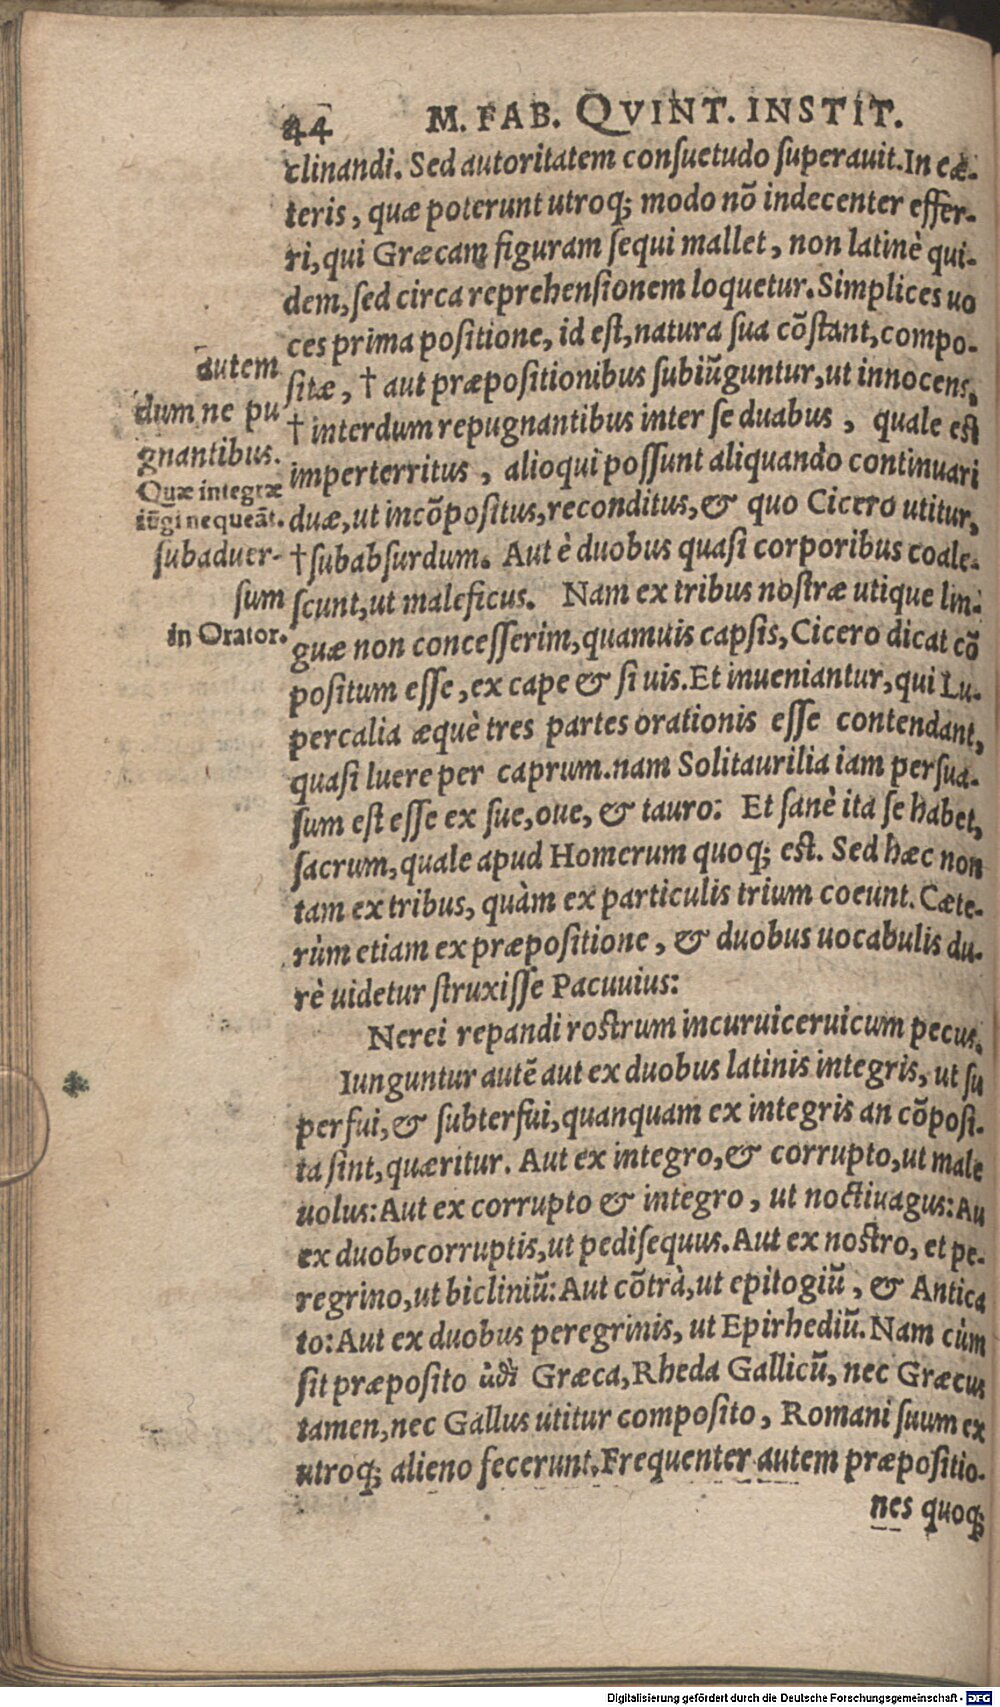 44 M. FAB. QVINT. INSTIT.
clinandi. Sed autoritatem conſuetudo ſuperauit. In cæ-
teris, quæ poterunt utroq; modo nõ indecenter effer-
ri, qui Græcam figuram ſequi mallet, non latinè qui-
dem, ſed circa reprehenſionem loquetur. Simplices uo
ces prima poſitione, id eſt, natura ſua cõſtant, compo-
ſitæ, † aut præpoſitionibus ſubiũguntur, ut innocens,
† interdum repugnantibus inter ſe duabus, quale eſt
imperterritus, alioqui poſſunt aliquando continuari
duæ, ut incõpoſitus, reconditus, & quo Cicero utitur,
† ſubabſurdum. Aut è duobus quaſi corporibus coale-
ſcunt, ut maleficus. Nam ex tribus noſtræ utique lin-
guæ non conceſſerim, quamuis capſis, Cicero dicat cõ
poſitum eſſe, ex cape & ſi uis. Et inueniantur, qui Lu-
percalia æquè tres partes orationis eſſe contendant,
quaſi luere per caprum. nam Solitaurilia iam perſua-
ſum eſt eſſe ex ſue, oue, & tauro: Et ſanè ita ſe habet,
ſacrum, quale apud Homerum quoq; eſt. Sed hæc non
tam ex tribus, quàm ex particulis trium coeunt. Cæte-
rùm etiam ex præpoſitione, & duobus uocabulis du-
rè uidetur ſtruxiſſe Pacuuius:
Nerei repandi roſtrum incuruiceruicum pecus.
Iunguntur autẽ aut ex duobus latinis integris, ut ſu
perfui, & ſubterfui, quanquam ex integris an cõpoſi-
ta ſint, quæritur. Aut ex integro, & corrupto, ut male
uolus: Aut ex corrupto & integro, ut noctiuagus: Au
ex duob. corruptis, ut pediſequus. Aut ex noſtro, et pe-
regrino, ut bicliniũ: Aut cõtrà, ut epitogiũ, & Antica
to: Aut ex duobus peregrinis, ut Epirhediũ. Nam cùm
ſit præpoſito Græca, Rheda Gallicũ, nec Græcus
tamen, nec Gallus utitur compoſito, Romani ſuum ex
utroq; alieno fecerunt. Frequenter autem præpoſitio-
nes quoq;
autem
dum ne pu
gnantibus.
Quæ integræ
iũgi nequeãt.
ſubaduer-
ſum
in Orator.
Digitalisierung gefördert durch die Deutsche Forschungsgemeinschaft - DFG